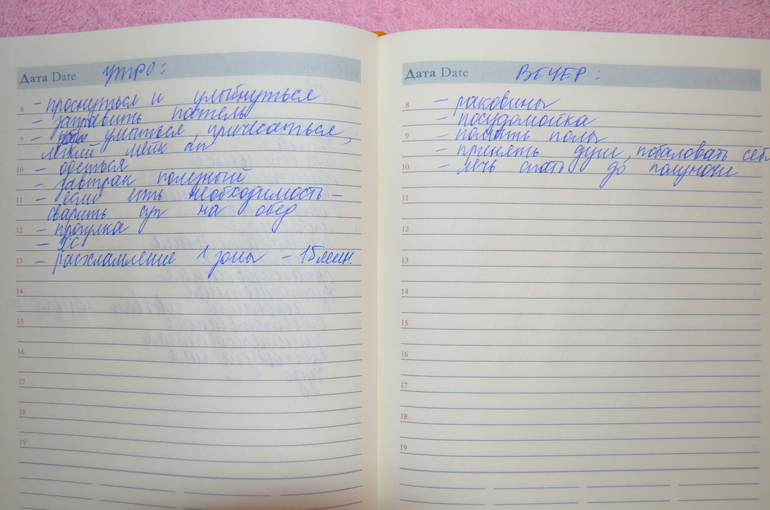 Дата Date утро:
8 - проснуться и улыбнуться
- заправить постель
9 - умыться, причесаться,
легкий мейк ап
10 - одеться
- завтрак полезный
11 - если есть необходимость -
сварить суп на обед
12 - прогулка
-
13 - расхламление 1 зоны - 15 мин.
14
15
16
17
18
19
Дата Date ВЕЧЕР:
8 - раковины
- посудомойка
9 - помыть полы
- принять душ, побаловать себя
10 - лечь спать до полуночи
11
12
13
14
15
16
17
18
19